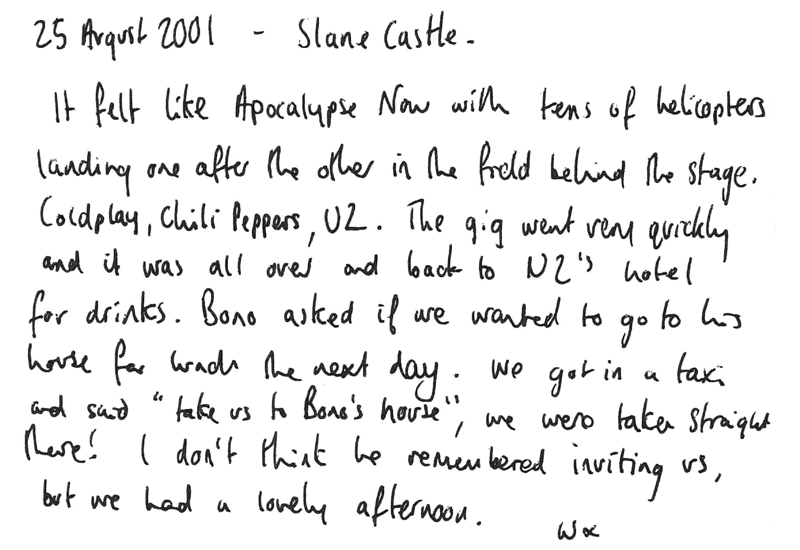 25 August 2001 - Slane Castle.
It felt like Apocalypse Now with tens of helicopters
landing one after the other in the field behind the stage.
Coldplay, Chili Peppers, U2. The gig went very quickly
and it was all over and back to U2's hotel
for drinks. Bono asked if we wanted to go to his
house for lunch the next day. We got in a taxi
and said "take us to Bono's house", we were taken straight
there! I don't think he remembered inviting us,
but we had a lovely afternoon.
Wx